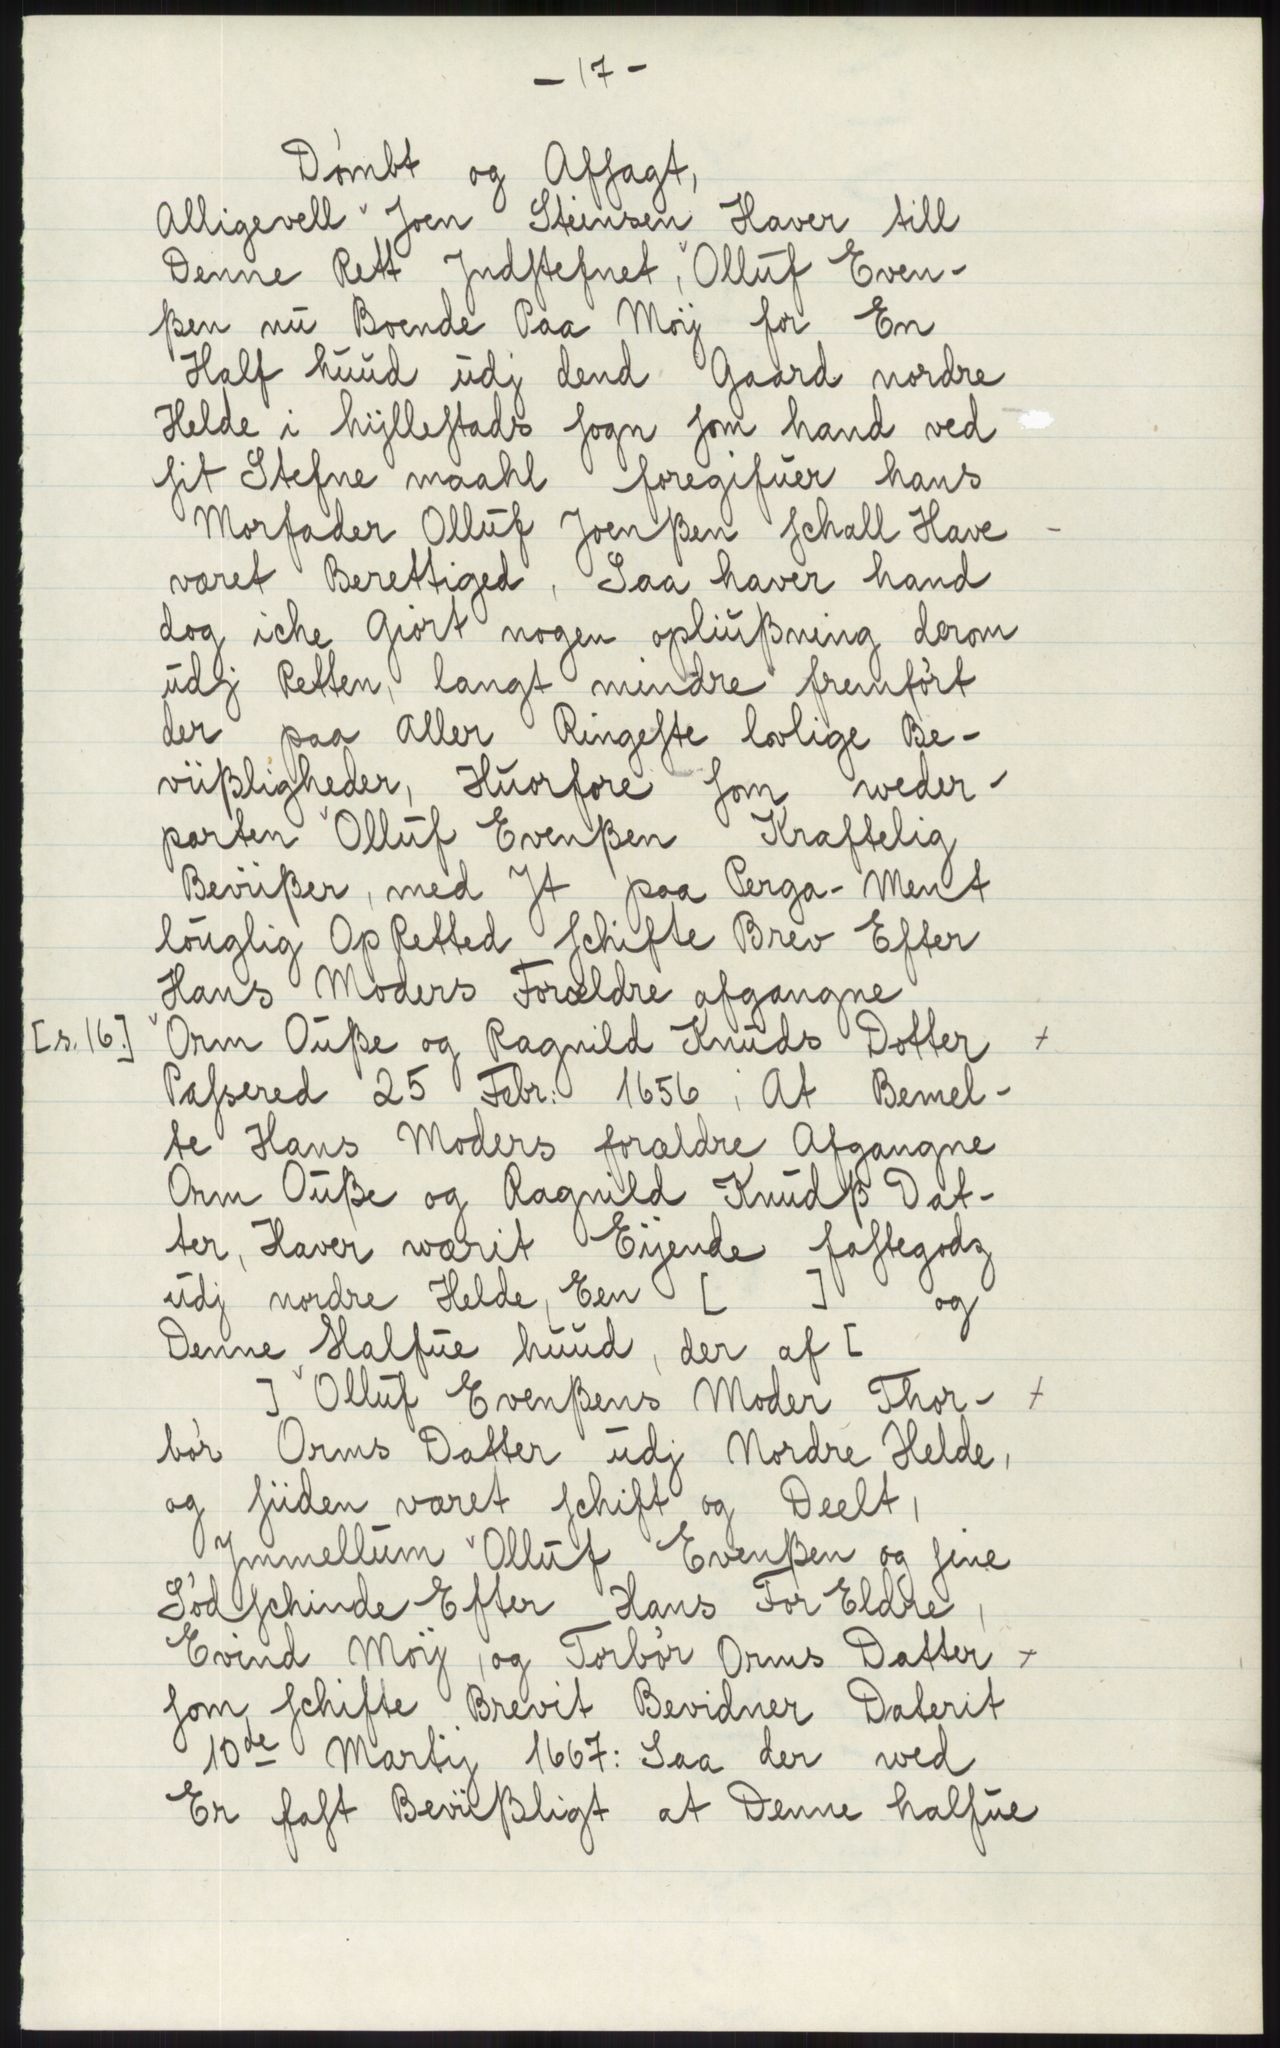 - 17 -
Dömbt og Afsagt,
Alligevell Joen Steinsen Haver till
Denne Rett Jndstefnet, Olluf Even-
ßen nu Boende Paa Möÿ for En
Half huud udj dend Gaard nordre
Helde i hÿllestads sogn som hand ved
sit Stefne maahl foregifuer hans
Morfader Olluf Joenßen schall Have -
været Berettiged, Saa haver hand
dog iche Giört nogen opliußning derom
udj Retten, langt mindre fremfört
der paa Aller Ringeste lovlige Be-
viißligheder, Huorfore som weder-
parten Olluf Evenßen Kraftelig
Beviißer, med Jt paa Perga- Ment
löuglig OpRetted schifte Brev Efter
Hans Moders Forældre afgangne
[s. 16.] Orm Ouße og Ragnild Knuds Dotter +
Passered 25 Febr: 1656, At Bemel-
te Hans Moders forældre Afgangne
Orm Ouße og Ragnild Knudß Dat-
ter, Haver wærit Eÿende fastegodz
udj nordre Helde, Een [ ] og
Denne Halfue huud, der af [
] Olluf Evenßens Moder Thor- +
bör Orms Datter udj Nordre Helde,
og siiden været schift og Deelt,
Jmmellum Olluf Evenßen og sine
Södschinde Efter Hans ForEldre,
Evind Möÿ, og Torbör Orms Datter +
som schifte Brevit Bevidner Daterit
10de Martij 1667: Saa der wed
Er fast Beviißligt at Denne halfue